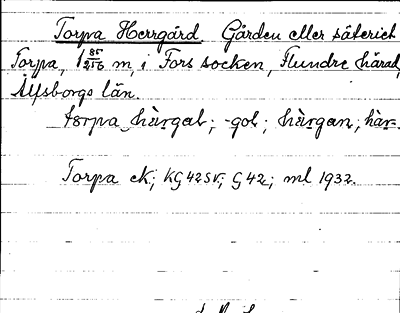 Torpa Herrgård Gården eller säteriet
Torpa, 1 85/256 m, i Fors socken, Flundre härad,
Älfsborgs län.
hàrgaḷ; -goḷ; hàrgan; här-
Torpa ek; KG42SV; G42; ml 1932.